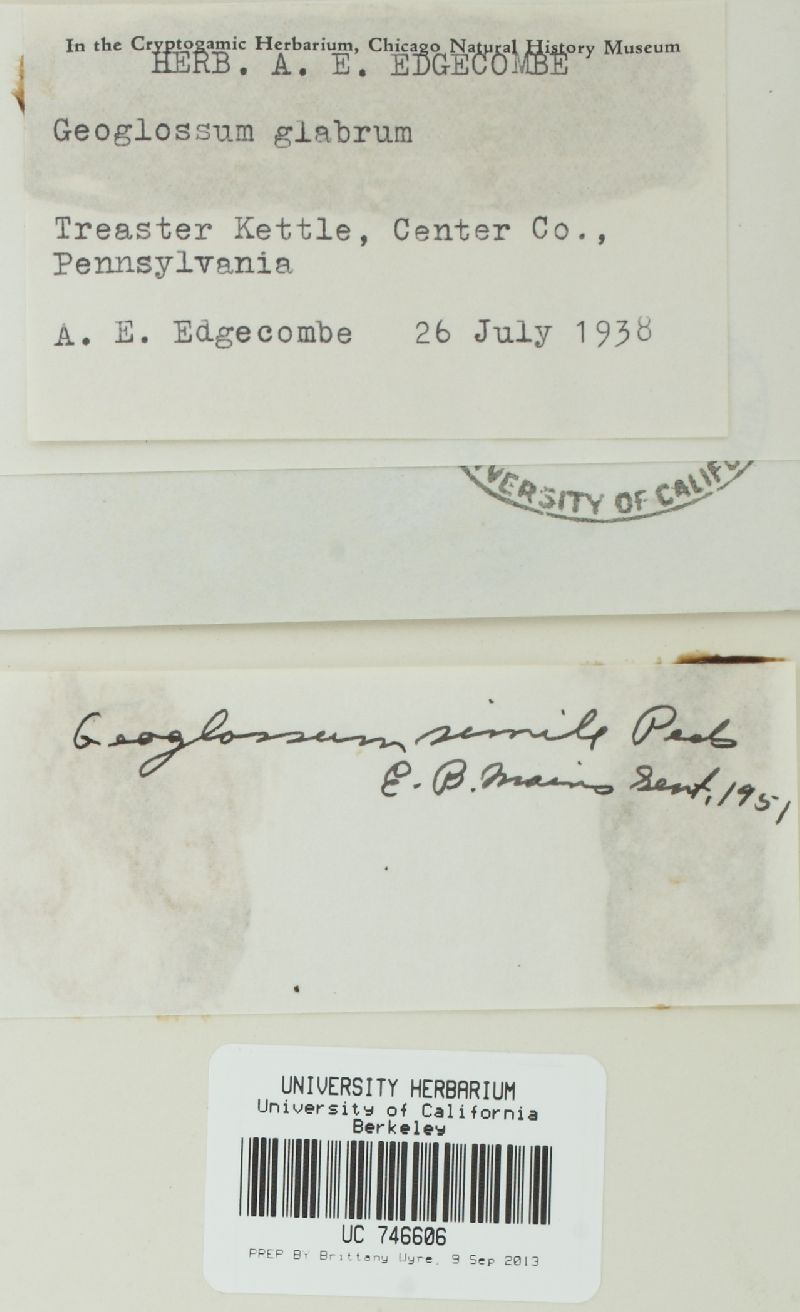 In the Cryptogamic Herbarium, Chicago Natural History Museum
HERB. A. E. EDGECOMBE
Geoglossum glabrum
Treaster Kettle, Center Co.,
Pennsylvania
A. E. Edgecombe 26 July 1938
VERSITY OF CALIF
Geoglossum simile Peck
E. B. Mains Sept. 1951
UNIVERSITY HERBARIUM
University of California
Berkeley
UC 746606
PREP BY Brittany Uyre, 9 Sep 2013